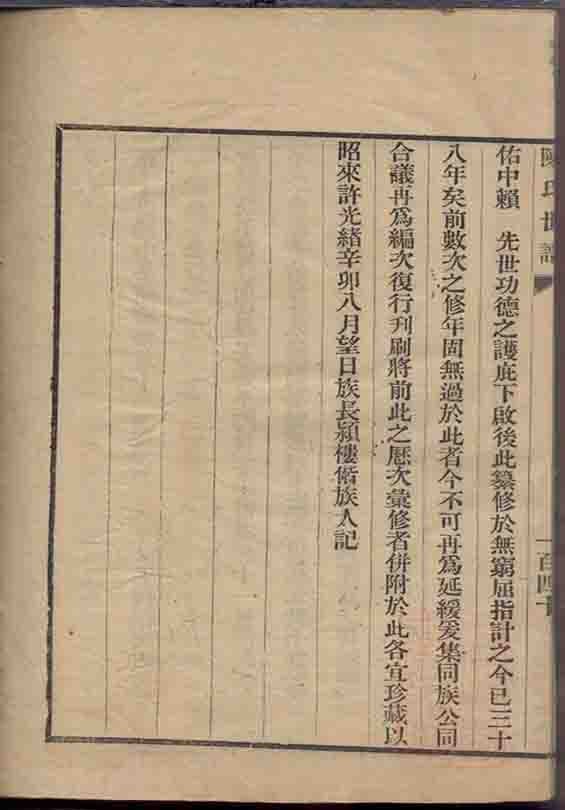 陳氏世譜
一百四十
佑中賴　先世功德之護庇下啟後此纂修於無窮屈指計之今已三十
八年矣前數次之修年固無過於此者今不可再為延緩爰集同族公同
合議再為編次復行刋刷將前此之厯次彙修者併附於此各宜珍藏以
昭來許光緒辛卯八月望日族長潁樓偕族人記